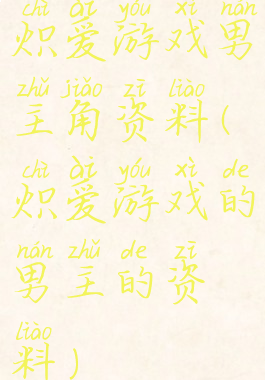 chì ài yóu xì nán
炽爱游戏男
zhǔ jiǎo zī liào
主角资料(
chì ài yóu xì de
炽爱游戏的
nán zhǔ de zī
男主的资
liào
料)